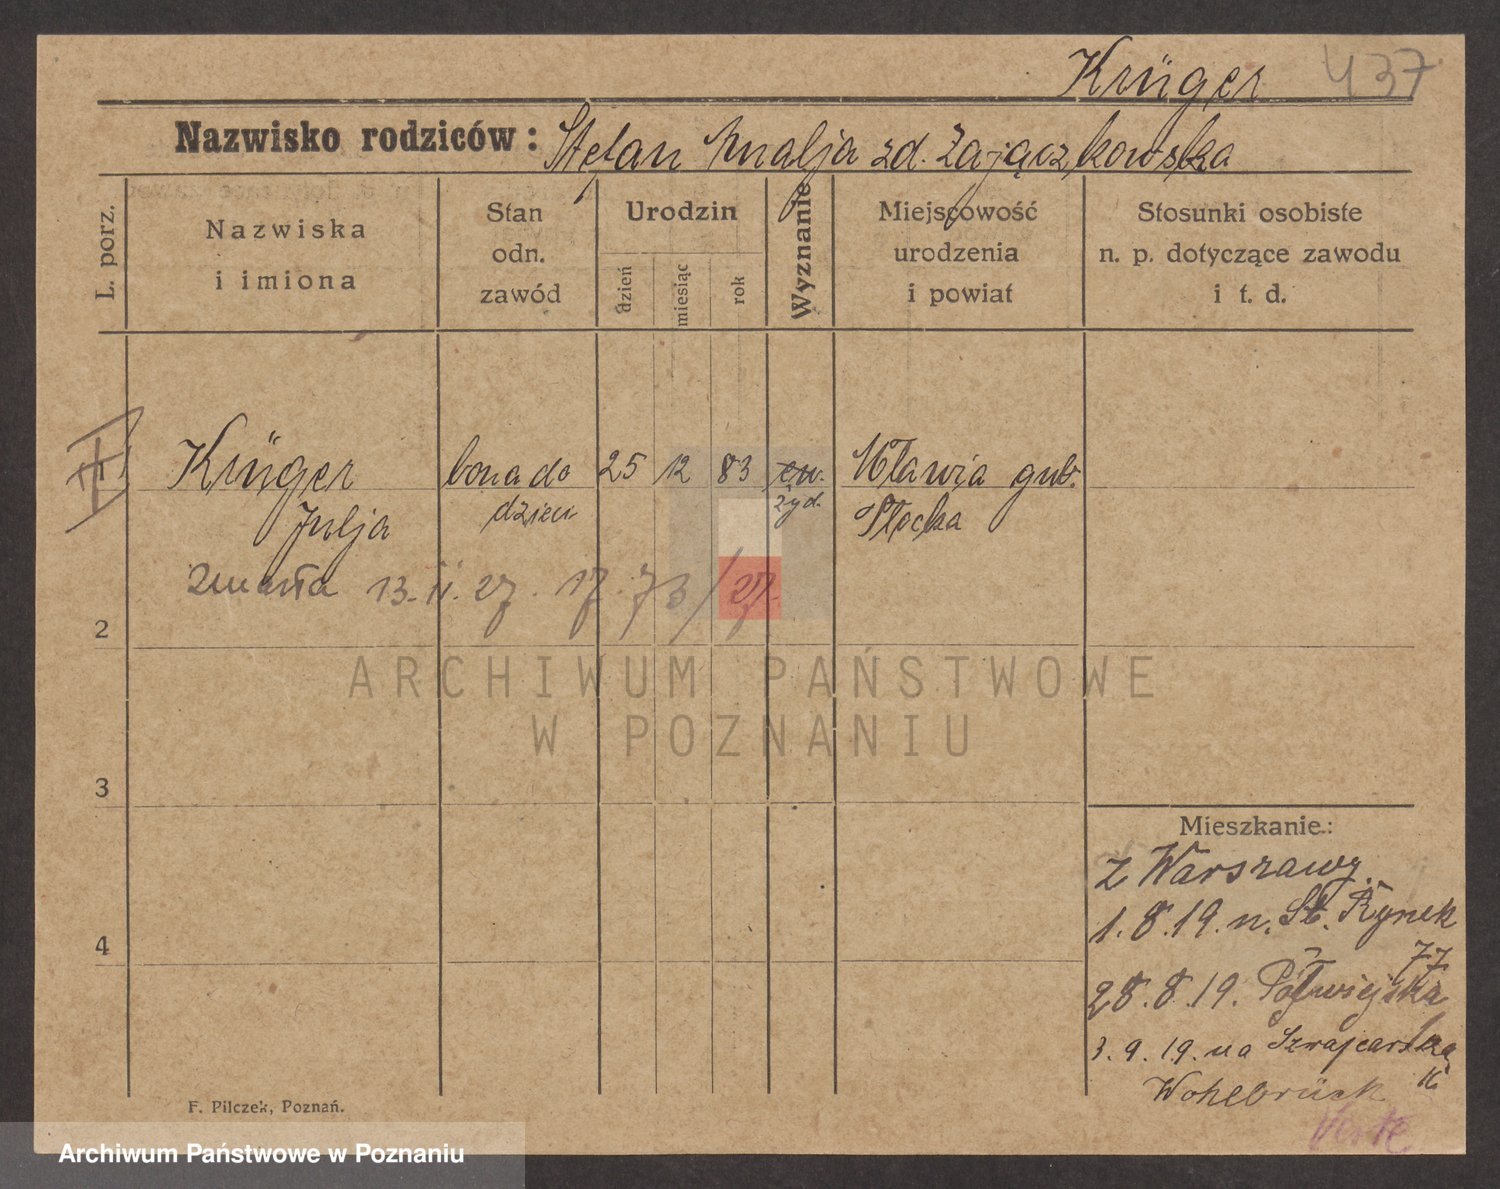 Krüger 437
Nazwisko rodziców: Stefan Amalja zd. Zajączkowska
L. porz.
Nazwiska
i imiona
Stan
odn.
zawód
Urodzin
dzień
miesiąc
rok
Wyznanie
Miejscowość
urodzenia
i powiat
Stosunki osobiste
n. p. dotyczące zawodu
i t. d.
Krüger bona do 25 12 83 ew. Mławia gub.
Julja dzieci żyd. Płocka
zmarła 13. II. 27. 17. 73/27
2
ARCHIWUM PAŃSTWOWE
W POZNANIU
3
Mieszkanie:
z Warszawy.
1.8.19. n. St. Rynek
77
4
28.8.19. Półwiejska
3.9.19. na Szwajcarską
Wohlbrück
F. Pilczek, Poznań.
Verte
Archiwum Państwowe w Poznaniu